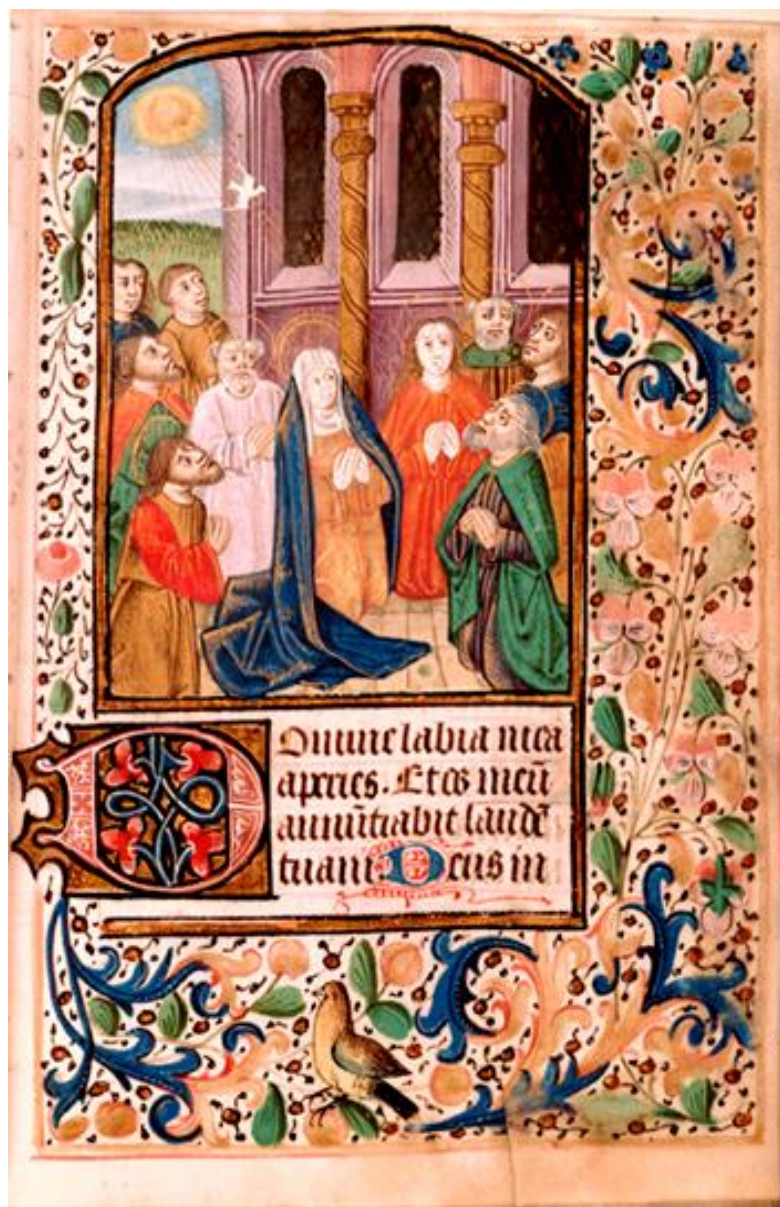 Domine labia mea
aperies. Et os meū
annūtiabit laudē
tuam. Deus in